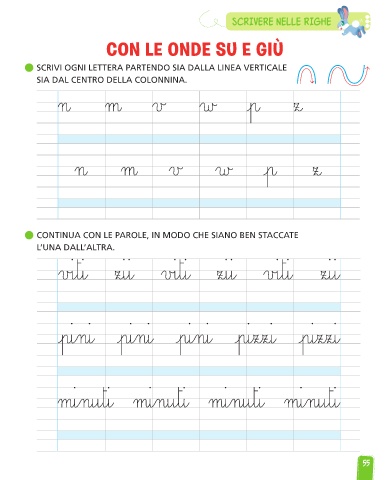 SCRIVERE NELLE RIGHE
CON LE ONDE SU E GIÙ
SCRIVI OGNI LETTERA PARTENDO SIA DALLA LINEA VERTICALE
SIA DAL CENTRO DELLA COLONNINA.
n m v w p z
n m v w p z
CONTINUA CON LE PAROLE, IN MODO CHE SIANO BEN STACCATE
L'UNA DALL'ALTRA.
viti zii viti zii viti zii
pini pini pini pizzi pizzi
minuti minuti minuti minuti
55